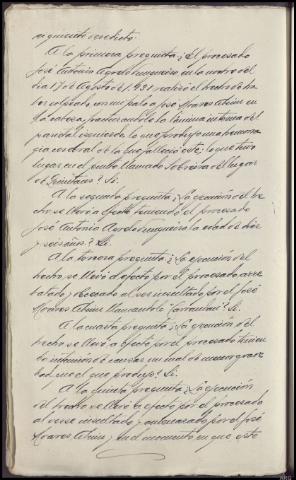 siguiente veredicto:
A la primera pregunta ¿El procesado
José Antonio Agrelo en la noche del
dia 17 de Agosto de 1931 realizó el hecho de ha-
ber golpeado con un palo a José Mares Alem en
la cabeza fracturandole la lámina interna del
parietal izquierdo lo que produjo una hemorra-
gia cerebral de la que falleció este; lo que tuvo
lugar en el punto llamado Sobreira del lugar
de ? Si.
A la segunda pregunta ¿La ejecución del he-
cho se llevó a efecto teniendo el procesado
José Antonio Agrelo la edad de diez
y seis años? Si.
A la tercera pregunta ¿La ejecución del
hecho se llevó a efecto por el procesado arre-
batado y obcecado al ser insultado por el José
Mares Alem llamandole ? Si.
A la cuarta pregunta ¿La ejecución del
hecho se llevó a efecto por el procesado sin
intención de causar un mal de menor grave-
dad que el que produjo? Si.
A la quinta pregunta ¿La ejecución
del hecho se llevó a efecto por el procesado
al verse insultado y amenazado por el José
Mares Alem, y en el momento en que este